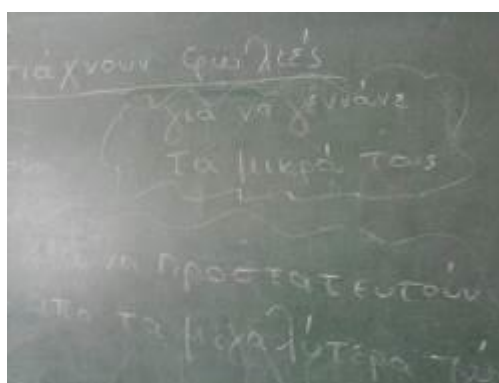 τιάχνουν φωλιές
για να γεννάνε
τα μικρά τους
για να προστατευτούν
απο τα μεγαλύτερα